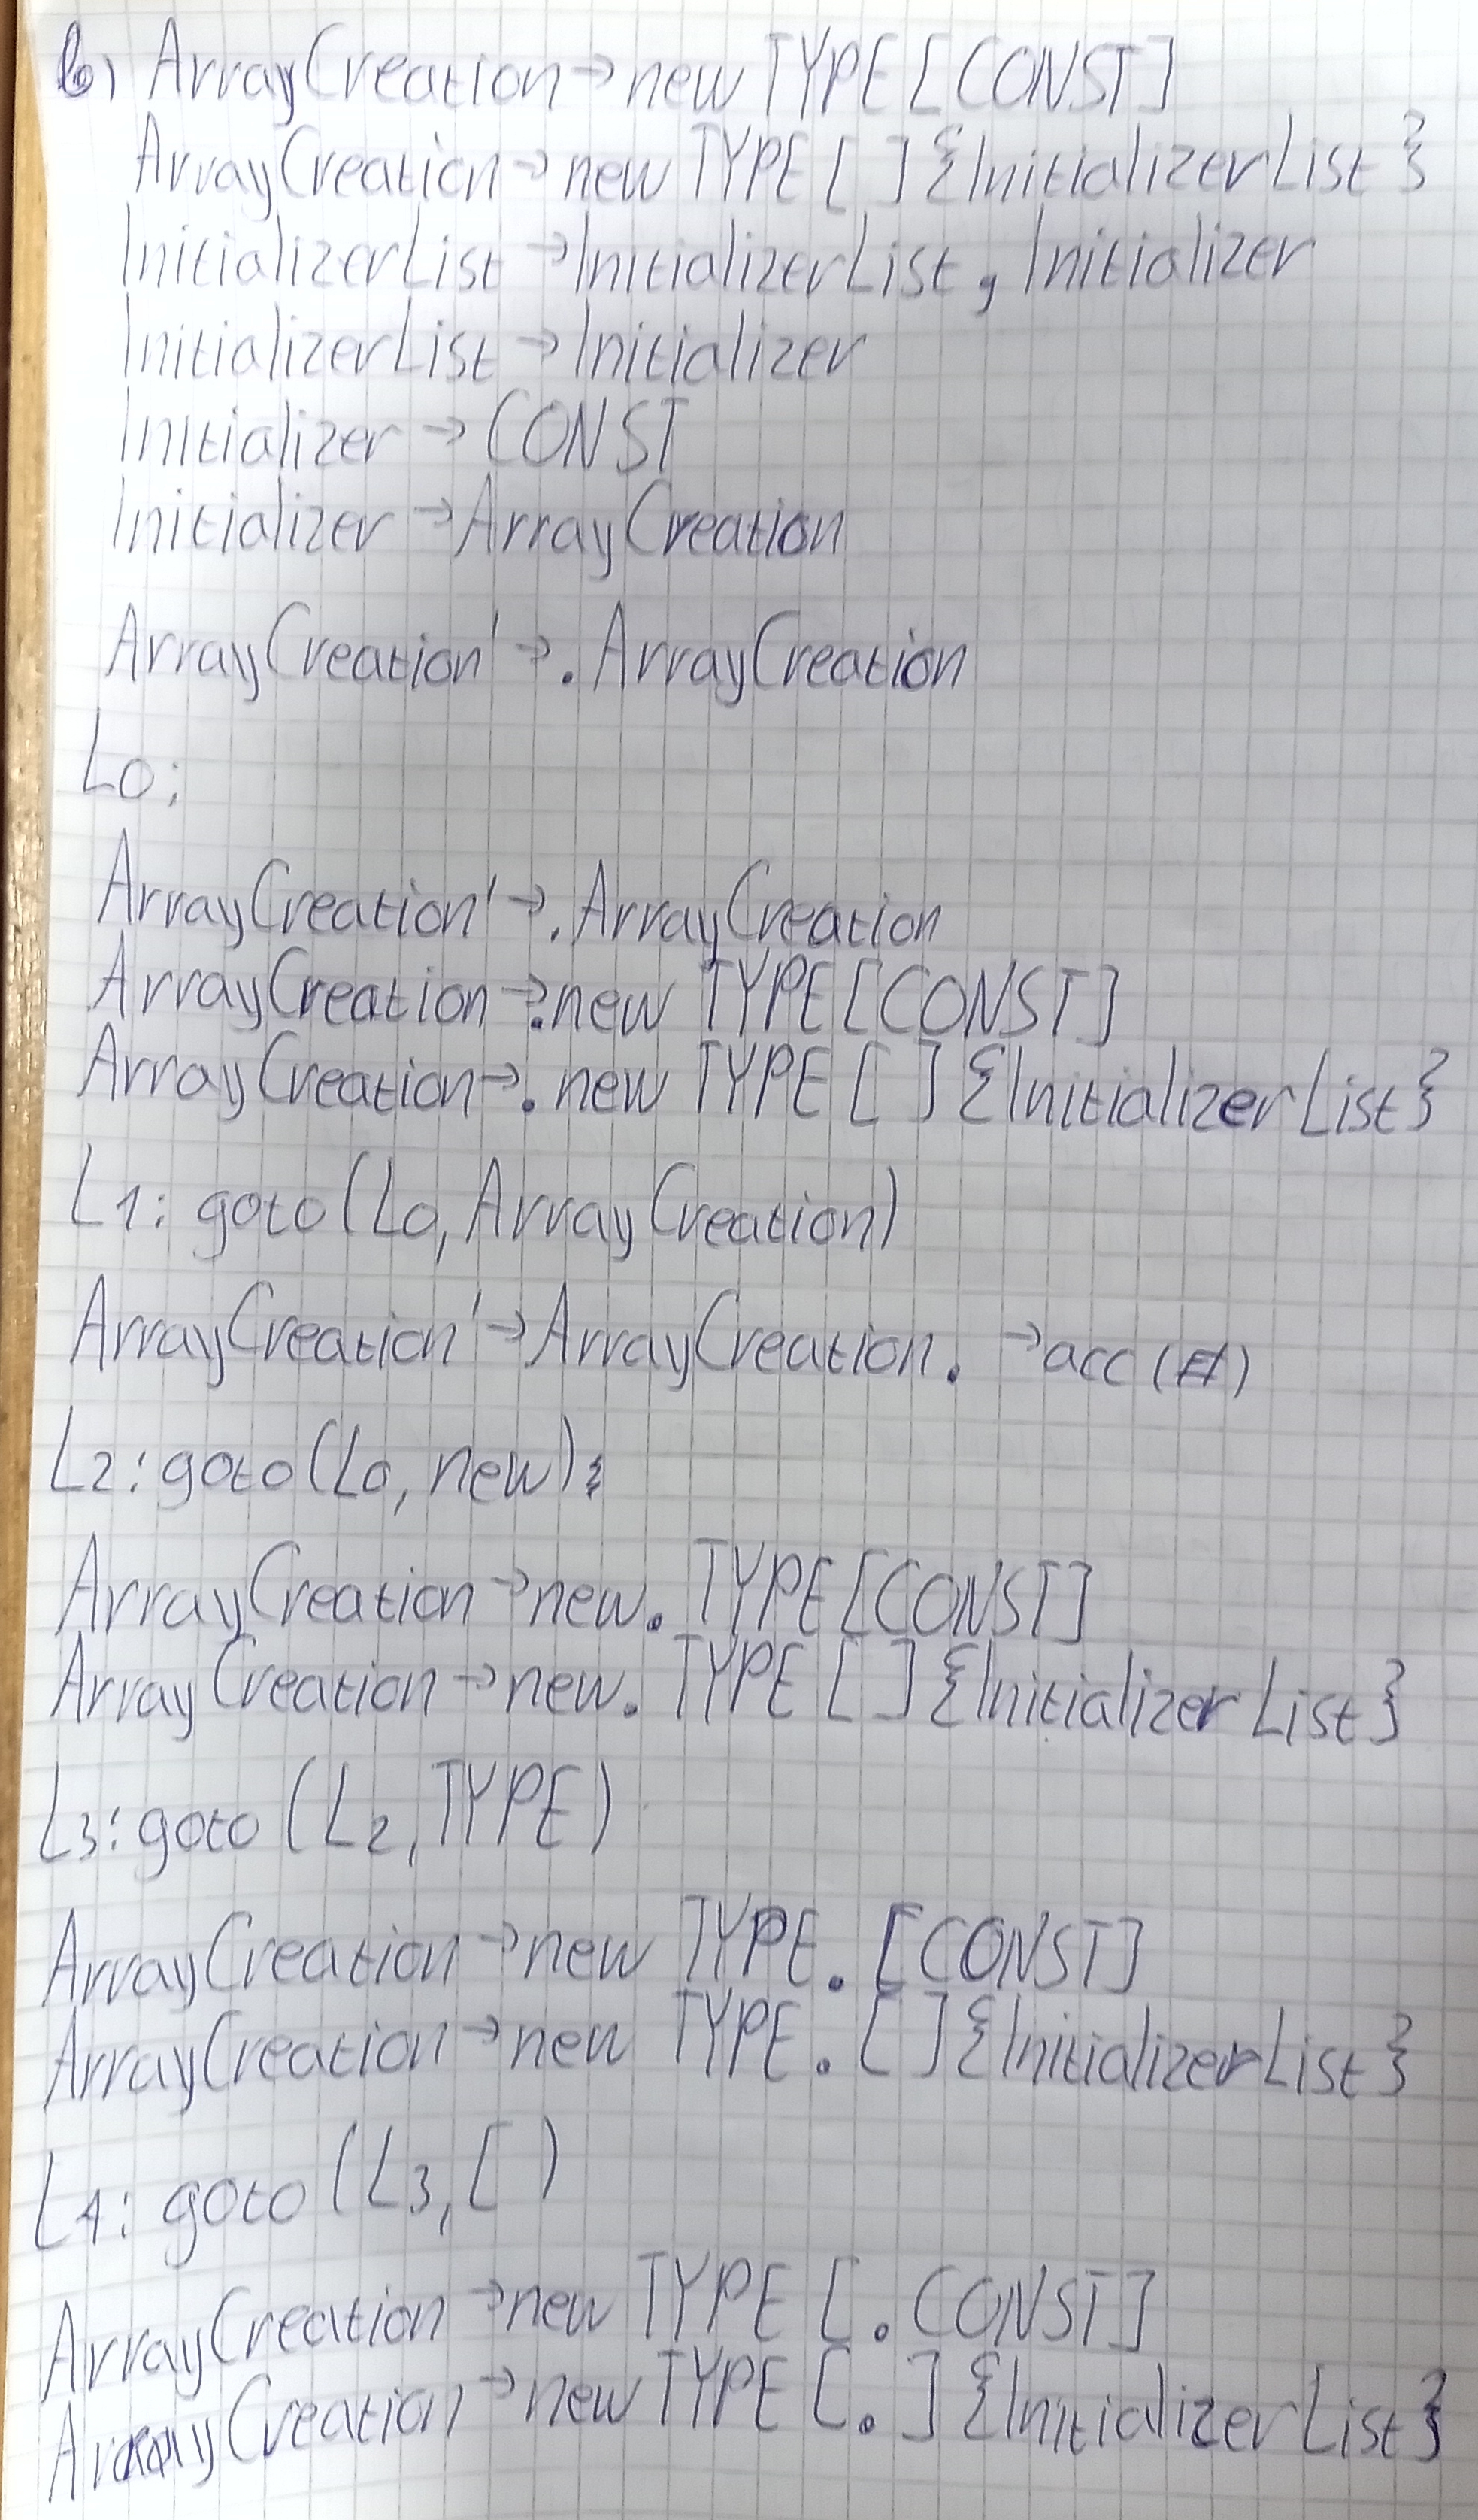 b) ArrayCreation → new TYPE [CONST]
ArrayCreation → new TYPE [ ] {InitializerList}
InitializerList → InitializerList , Initializer
InitializerList → Initializer
Initializer → CONST
Initializer → ArrayCreation
ArrayCreation' → . ArrayCreation
L0:
ArrayCreation' → . ArrayCreation
ArrayCreation → . new TYPE [CONST]
ArrayCreation → . new TYPE [ ] {InitializerList}
L1: goto (L0, ArrayCreation)
ArrayCreation' → ArrayCreation . → acc (#)
L2: goto (L0, new):
ArrayCreation → new . TYPE [CONST]
ArrayCreation → new . TYPE [ ] {InitializerList}
L3: goto (L2, TYPE)
ArrayCreation → new TYPE . [CONST]
ArrayCreation → new TYPE . [ ] {InitializerList}
L4: goto (L3, [ )
ArrayCreation → new TYPE [ . CONST]
ArrayCreation → new TYPE [ . ] {InitializerList}